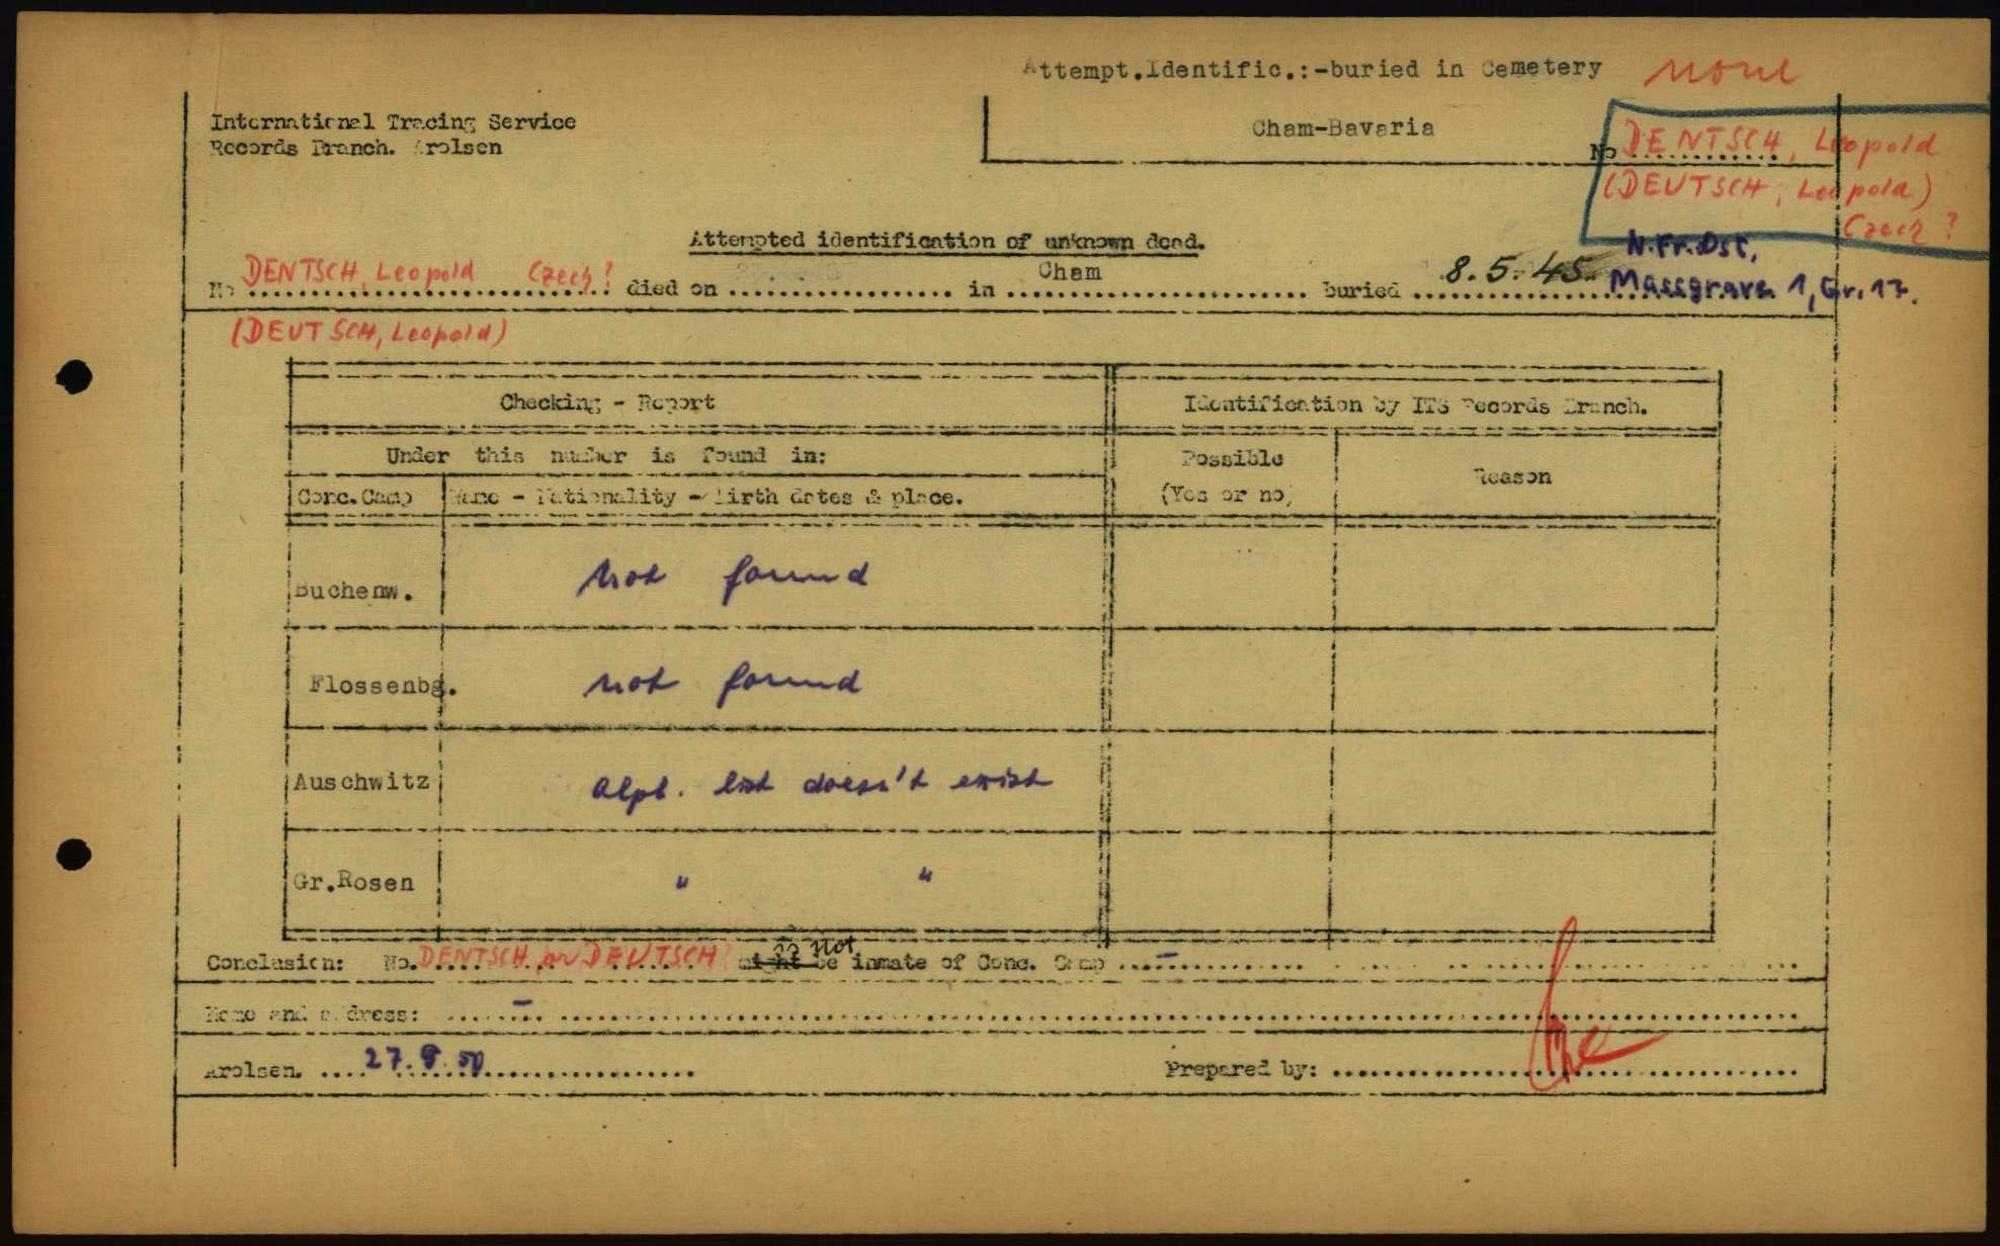 Attempt.Identific.:-buried in Cemetery none
International Tracing Service
Records Branch. Arolsen
Cham-Bavaria
No DENTSCH, Leopold
(DEUTSCH, Leopold)
Czech ?
Attempted identification of unknown dead.
N.Fr.Ost,
Massgrave 1, Gr. 17.
No DENTSCH, Leopold Czech! died on in Cham buried 8.5.45.
(DEUTSCH, Leopold)
Checking - Report
Identification by ITS Records Branch.
Under this number is found in:
Possible
(Yes or no)
Reason
Conc.Camp
Name - Nationality - Birth dates & place.
Buchenw. not found
Flossenbg. not found
Auschwitz alph. list doesn't exist
Gr.Rosen " "
Conclusion: No. DENTSCH or DEUTSCH might be not inmate of Conc. Camp -
Name and address: -
Arolsen. 27. 50
Prepared by: